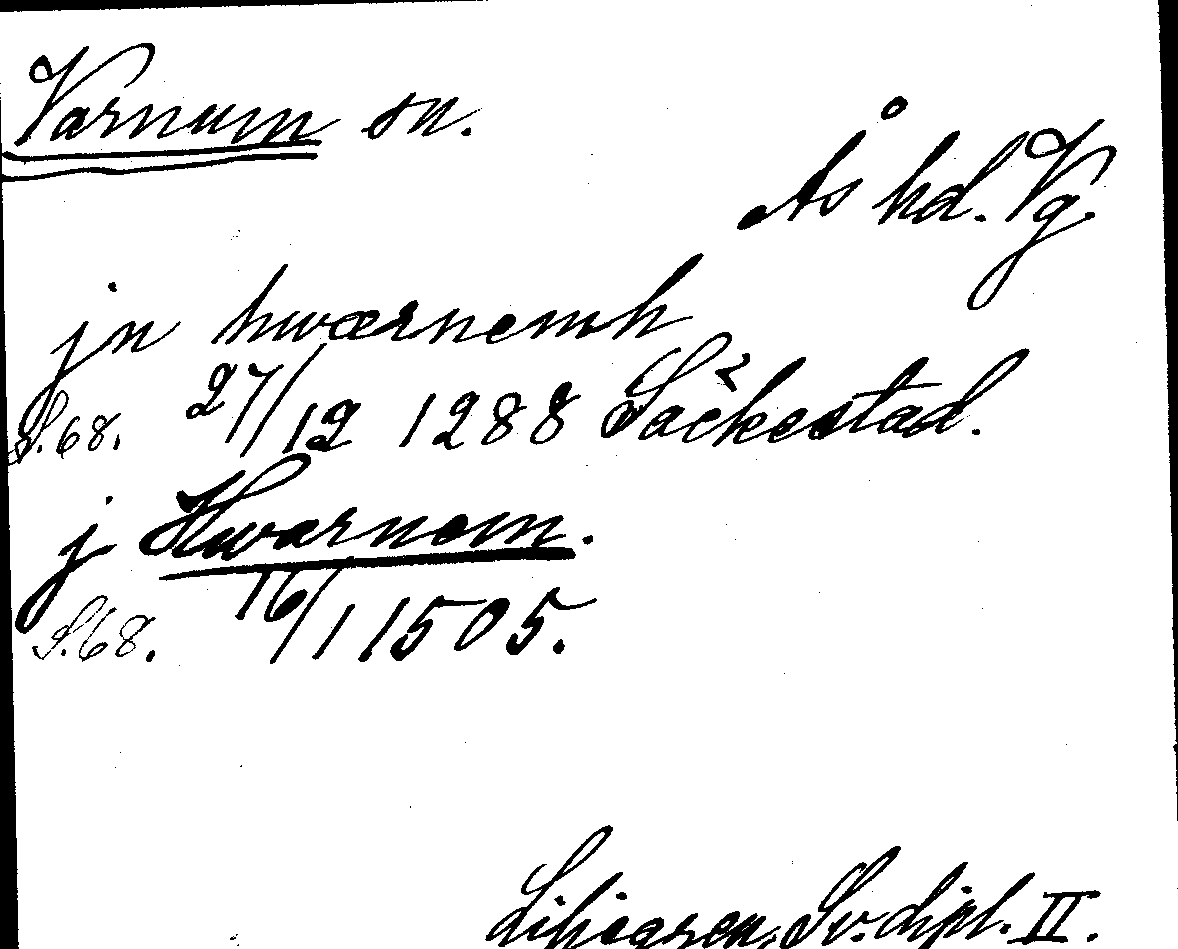 Varnum sn.
Ås hd. Vg.
jn hwærnemh
S. 68. 27/12 1288 Säckestad.
j Hwarnem.
S. 68. 16/1 1505.
Liljegren, Sv. dipl. II.